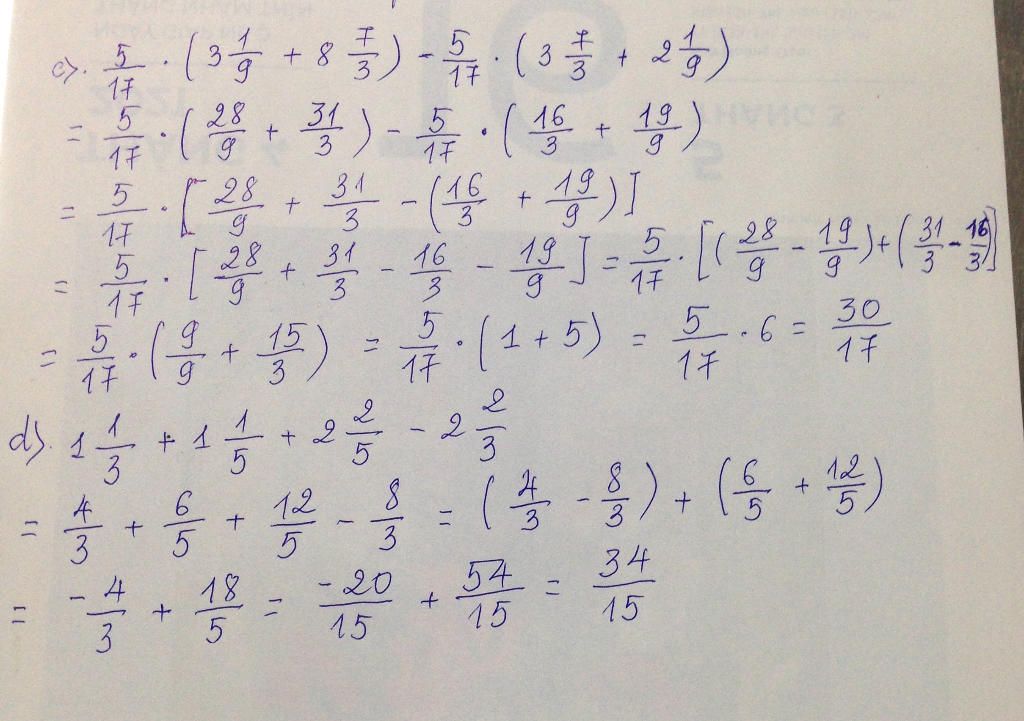 c). 5/17 · (3 1/9 + 8 7/3) - 5/17 · (3 7/3 + 2 1/9)
= 5/17 · (28/9 + 31/3) - 5/17 · (16/3 + 19/9)
= 5/17 · [28/9 + 31/3 - (16/3 + 19/9)]
= 5/17 · [28/9 + 31/3 - 16/3 - 19/9] = 5/17 · [(28/9 - 19/9) + (31/3 - 16/3)]
= 5/17 · (9/9 + 15/3) = 5/17 · (1 + 5) = 5/17 · 6 = 30/17
d). 1 1/3 + 1 1/5 + 2 2/5 - 2 2/3
= 4/3 + 6/5 + 12/5 - 8/3 = (4/3 - 8/3) + (6/5 + 12/5)
= -4/3 + 18/5 = -20/15 + 54/15 = 34/15